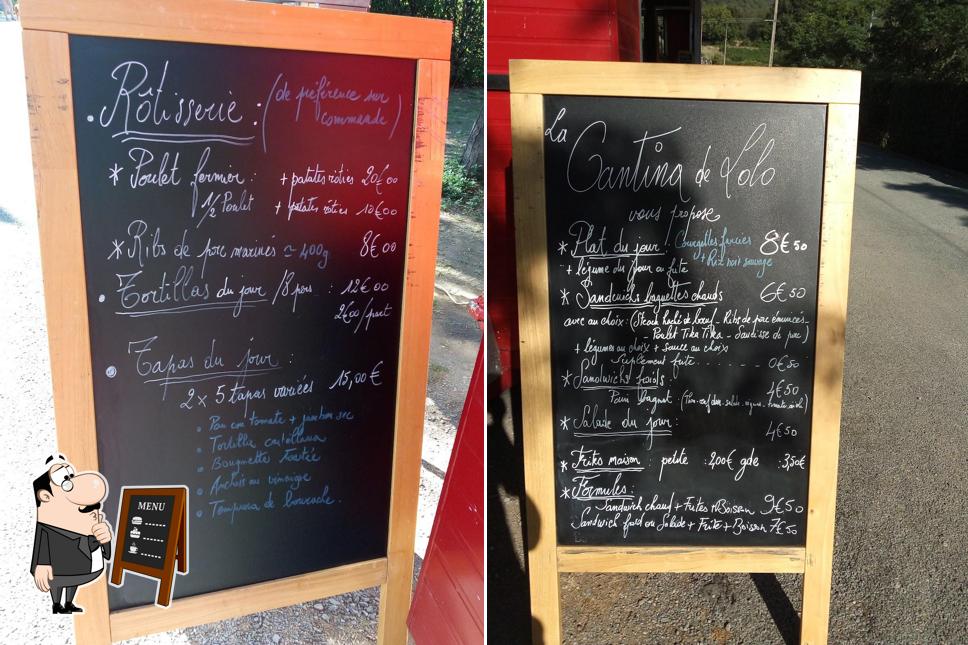 • Rôtisserie : (de préférence sur commande)
* Poulet fermier : + patates rôties 20€00
1/2 Poulet + patates rôties 10€00
* Ribs de porc marinés ≃ 400g 8€00
• Tortillas du jour /8 pers : 12€00
2€00/part
• Tapas du jour :
2 x 5 tapas variées 15,00€
• Pan con Tomate + jambon sec
• Tortilla castellana
• Bouquette Toastée
• Anchois au vinaigre
• Tempura de bourrache.
MENU
La Cantina de Lolo
vous propose
* Plat du jour : Courgettes farcies 8€50
+ Riz noir sauvage
+ légume du jour ou frite
* Sandwichs baguettes chauds 6€50
avec au choix : (Steack haché de bœuf - Ribs de porc émincés
- Poulet Tika Tika - Saucisse de porc)
+ légumes au choix + sauce au choix
Suplement frite . . . . . . 0€50
* Sandwichs froids :
Pain bagnat : (Thon - œuf dur - salade - - tomate) 4€50
* Salade du jour : 4€50
* Frites maison : petite : 2,00€ gde : 3,50€
* Formules :
Sandwich chaud + Frites + Boisson 9€50
Sandwich froid ou Salade + Frite + Boisson 7€50